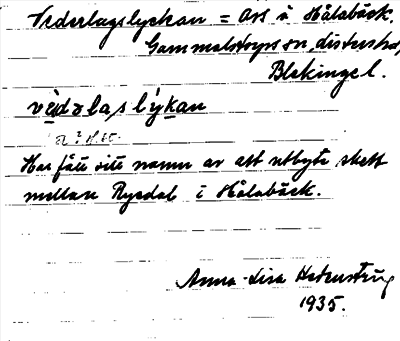 Vederlagslyckan = oss i Hålabäck.
Gammalstorps sn, Listers hd,
Blekinge l.
vèdəlaslykan
Har fått sitt namn av att utbyte skett
mellan Ryedal i Hålabäck.
Anna-Lisa
1935.